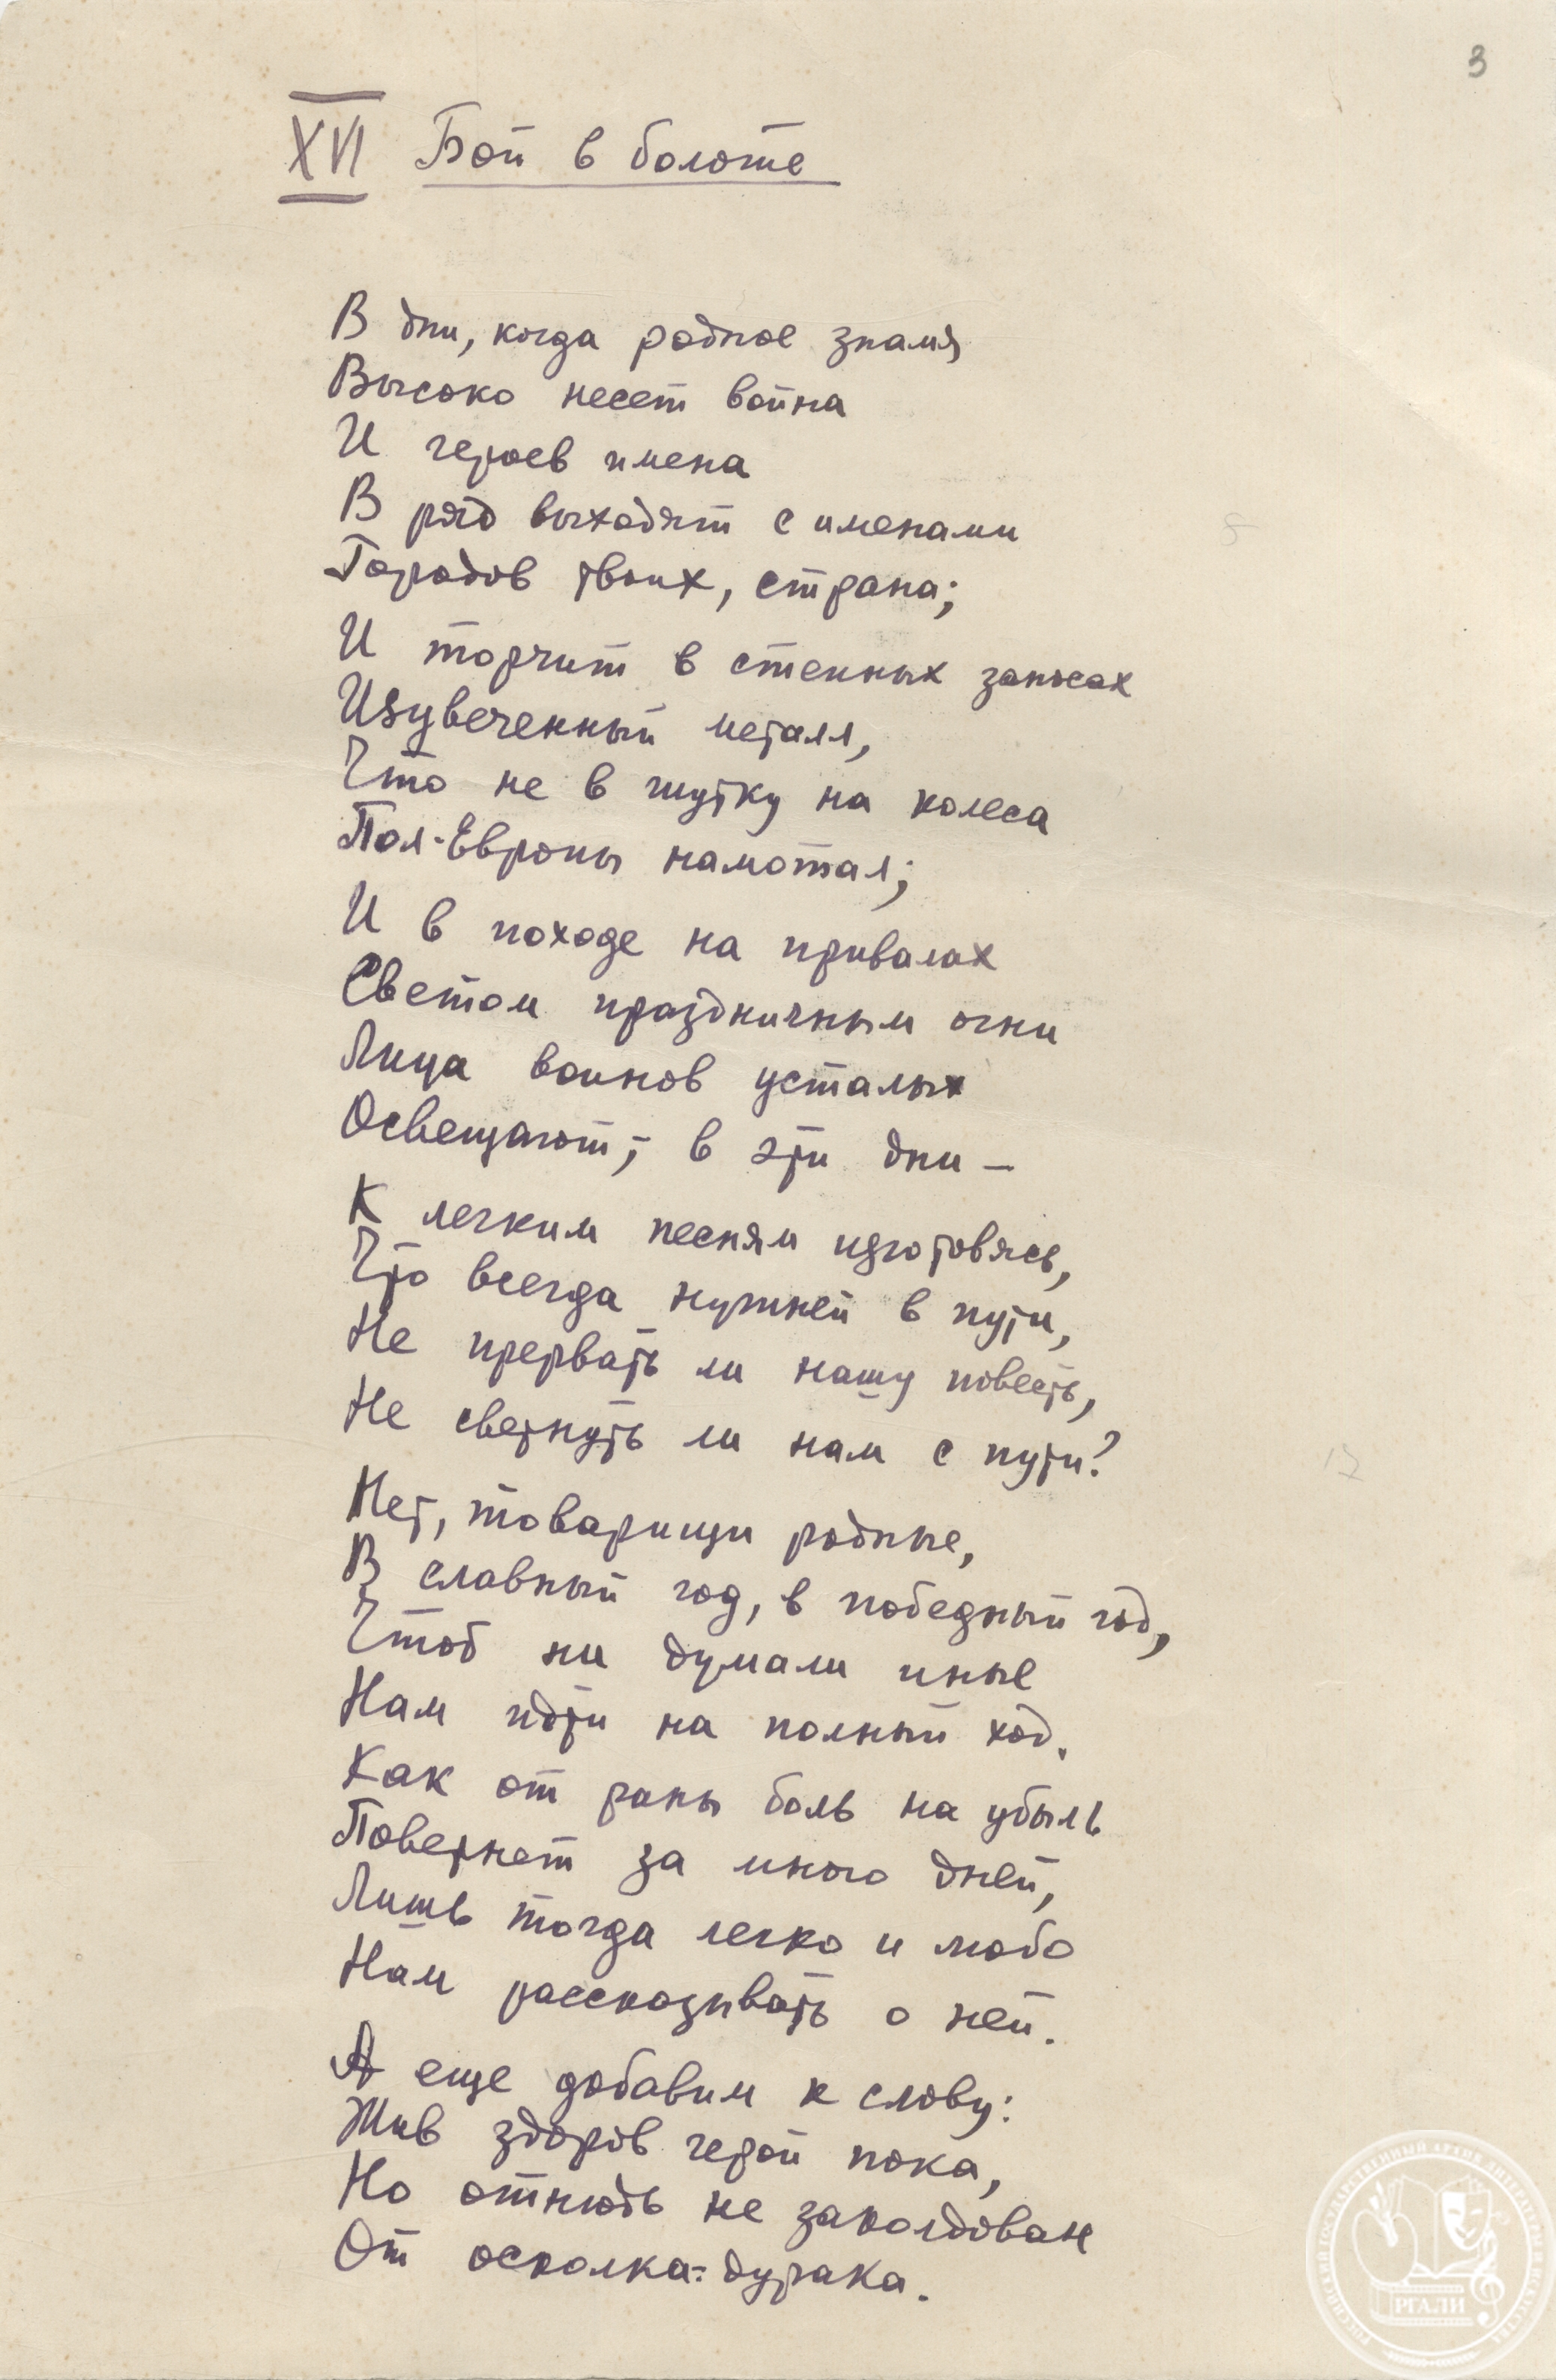 3
XVI Бой в болоте
В дни, когда родное знамя
Высоко несет война
И героев имена
В ряд выходят с именами
Городов твоих, страна;
И торчит в степных заносах
Изувеченный металл,
Что не в шутку на колеса
Пол-Европы намотал;
И в походе на привалах
Светом праздничным огни
Лица воинов усталых
Освещают; в эти дни –
К легким песням изготовясь,
Что всегда нужней в пути,
Не прервать ли нашу повесть,
Не свернуть ли нам с пути?
Нет, товарищи родные,
В славный год, в победный год,
Чтоб ни думали иные
Нам идти на полный ход.
Как от раны боль на убыль
Повернет за много дней,
Лишь тогда легко и любо
Нам рассказывать о ней.
А еще добавим к слову:
Жив здоров герой пока,
Но отнюдь не заколдован
От осколка-дурака.
РОССИЙСКИЙ ГОСУДАРСТВЕННЫЙ АРХИВ ЛИТЕРАТУРЫ И ИСКУССТВА
РГАЛИ